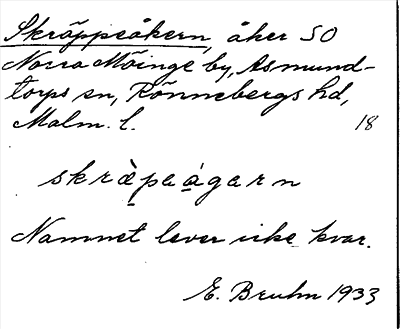 Skräppeåkern, åker SO
Norra Möinge by, Asmund-
torps sn, Rönnebergs hd,
Malm. l. 18
skrὰ̈paágarn
Namnet lever icke kvar.
E. Bruhn 1933